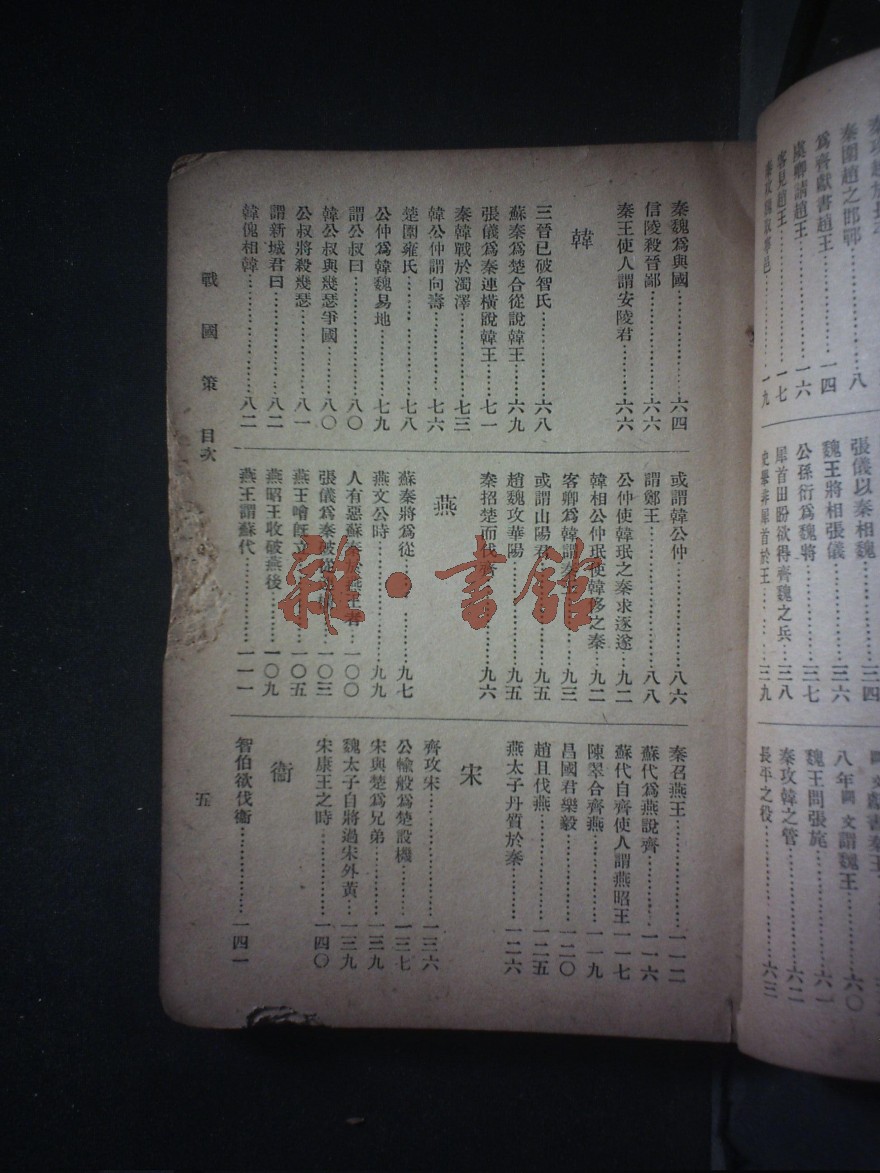 秦攻趙於長平
秦圍趙之邯鄲
為齊獻書趙王……一四
虞卿請趙王……一六
客見趙王……一七
張儀以秦相魏……三四
魏王將相張儀……三六
公孫衍為魏將……三七
犀首田盼欲得齊魏之兵……三八
史舉非犀首於王……三九
八年 謂魏王……六〇
魏王問張旄……六一
秦攻韓之管……六二
長平之役……六三
秦魏為與國……六四
信陵殺晉鄙……六六
秦王使人謂安陵君……六六
韓
三晉已破智氏……六八
蘇秦為楚合從說韓王……六九
張儀為秦連橫說韓王……七一
秦韓戰於濁澤……七三
韓公仲謂向壽……七六
楚圍雍氏……七八
公仲為韓魏易地……七九
謂公叔曰……八〇
韓公叔與幾瑟爭國……八〇
公叔將殺幾瑟……八一
謂新城君曰……八二
韓傀相韓……八二
或謂韓公仲……八六
謂鄭王……八八
公仲使韓珉之秦求逐遂……九二
韓相公仲珉使韓侈之秦……九二
客卿為韓謂秦王……九三
或謂山陽君……九五
趙魏攻華陽……九五
秦招楚而伐齊……九六
燕
蘇秦將為從……九七
燕文公時……九九
人有惡蘇秦於燕王者……一〇〇
張儀為秦破從連橫……一〇三
燕王噲既立……一〇五
燕昭王收破燕後……一〇九
燕王謂蘇代……一一一
秦召燕王……一一二
蘇代為燕說齊……一一六
蘇代自齊使人謂燕昭王……一一七
陳翠合齊燕……一一九
昌國君樂毅……一二〇
趙且伐燕……一二五
燕太子丹質於秦……一二六
宋
齊攻宋……一三六
公輸般為楚設機……一三七
宋與楚為兄弟……一三九
魏太子自將過宋外黃……一三九
宋康王之時……一四〇
衞
智伯欲伐衞……一四一
戰國策 目次
五
雜·書館